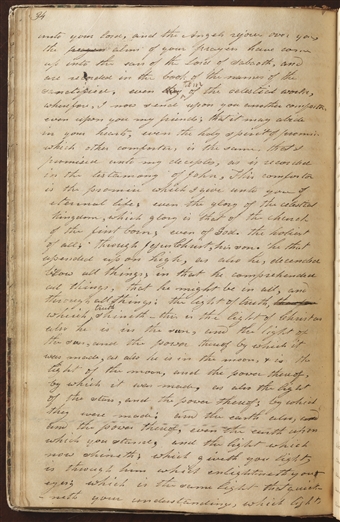 34
unto your Lord, and the Angels rejoice over you
the prayer alms of your prayers have come
up into the ears of the Lord of Sabaoth, and
are recorded in the book of the names of the
sanctified, even of the celestial world,
wherefore, I now send upon you another comforter
even upon you my friends; that it may abide
in your hearts, even the holy spirit of promise
which other comforter, is the same that I
promised unto my deciples, as is recorded
in the testamony of John, This comforter
is the promise which I give unto you of
eternal life; even the glory of the celestial
kingdom, which glory is that of the church
of the first born, even of God, the holiest
of all; through Jesus Christ, his son. he that
ascended up on high, as also he descended
below all things, in that he comprehended
all things, that he might be in all, and
through all things; the light of truth,
which truth shineth this is the light of Christ
also he is in the sun, and the light of
the sun, and the power thereof by which it
was made, as also he is in the moon, & is the
light of the moon, and the power thereof,
by which it was made, as also the light
of the stars, and the power thereof, by which
they were made; and the earth also, and
the power thereof, even the earth upon
which you stand, and the light which
now shineth; which giveth you light,
is through him which enlighteneth your
eyes; which is the same light that quick
neth your understanding, which light